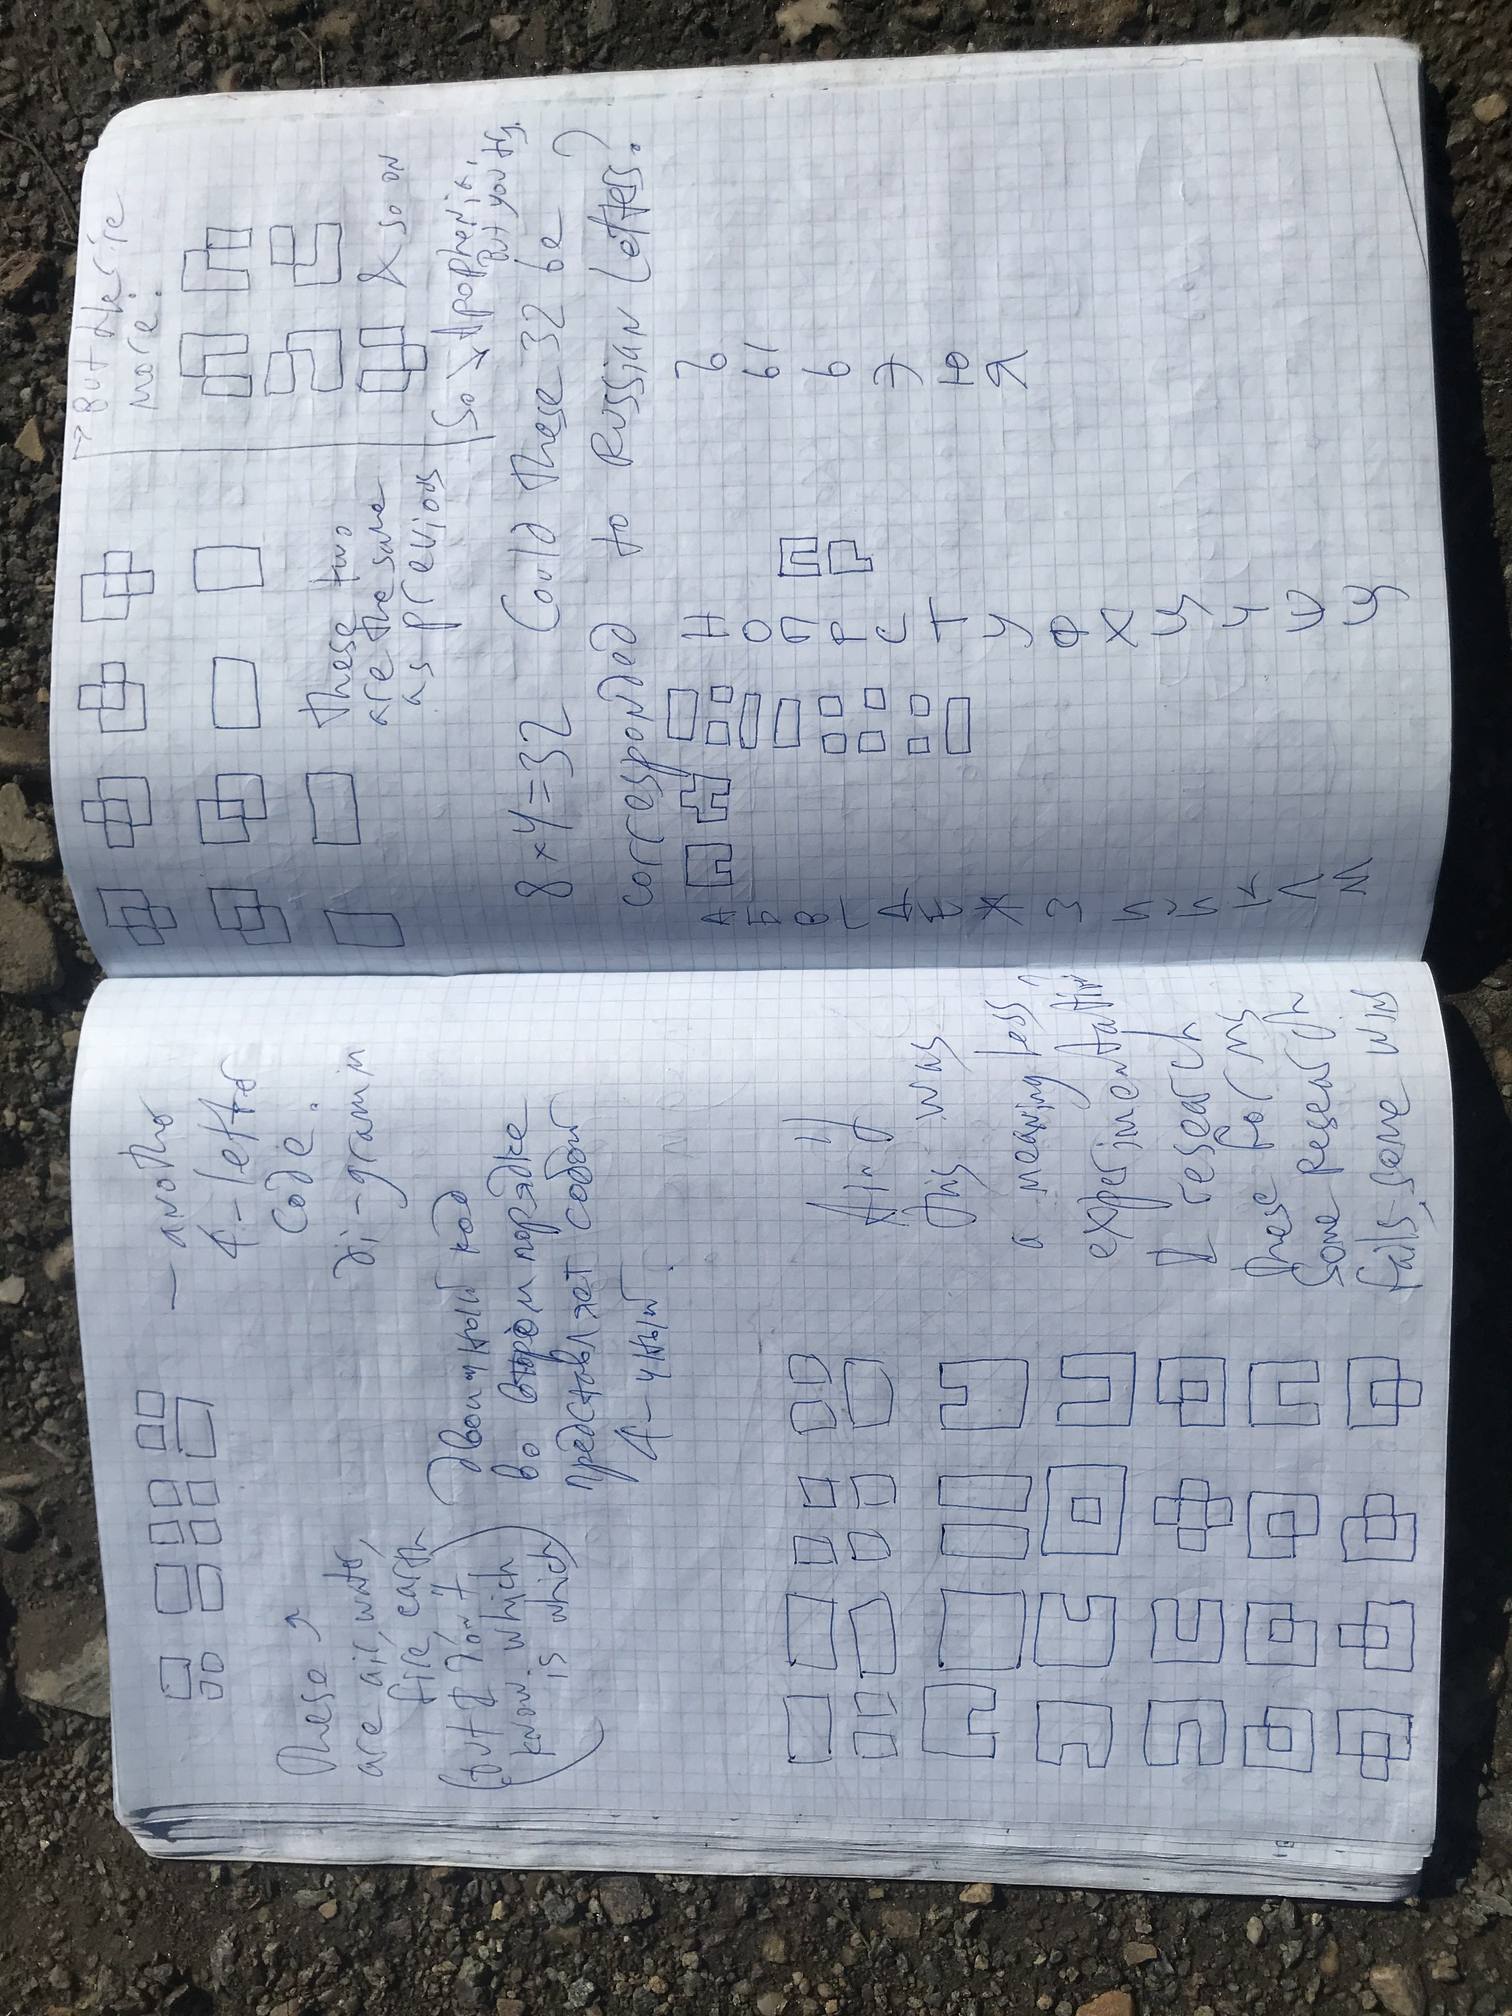 — another
4-letter
code.
di-gramm
These
are air, water,
fire, earth
(but I don't
know which
is which)
(Двоичный код
во втором порядке
представляет собой
4-чный
This was
a meaningless?
experimentation
I research
these forms
Some research
fails, some wins
These two
are the same
as previous
→ But there're
more.
& so on
So → Apophenia,
But you try.
8×4=32 Could these 32 be
corresponded to Russian letters?
А
Б
В
Г
Д
Е
Ж
З
И
Й
К
Л
М
Н
О
П
Р
С
Т
У
Ф
Х
Ц
Ч
Ш
Щ
Ъ
Ы
Ь
Э
Ю
Я